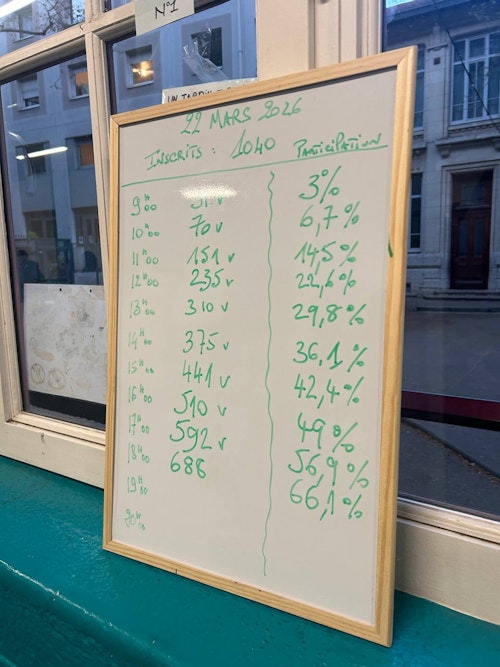 N°1
22 MARS 2026
INSCRITS : 1040 PARTICIPATION
9H00 31 v 3%
10H00 70 v 6,7%
11H00 151 v 14,5%
12H00 235 v 22,6%
13H00 310 v 29,8%
14H00 375 v 36,1%
15H00 441 v 42,4%
16H00 510 v 49%
17H00 592 v 56,9%
18H00 688 66,1%
19H00
20H00